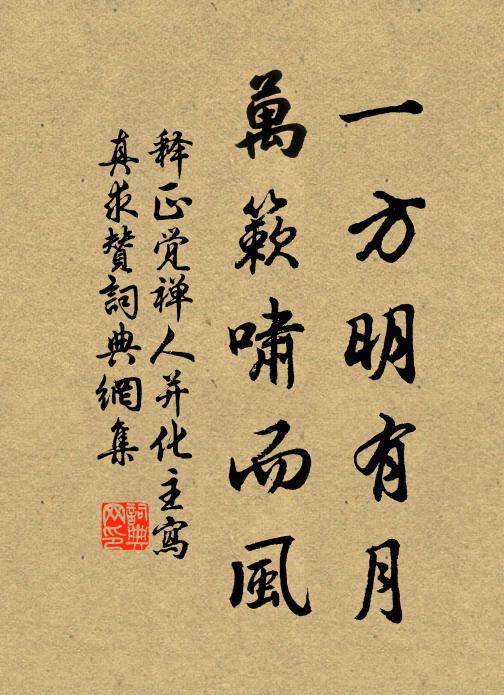 一方明有月
萬籟嘯而風
释正觉禅人并化主寫
真求賛詞典網集
詞典
网印